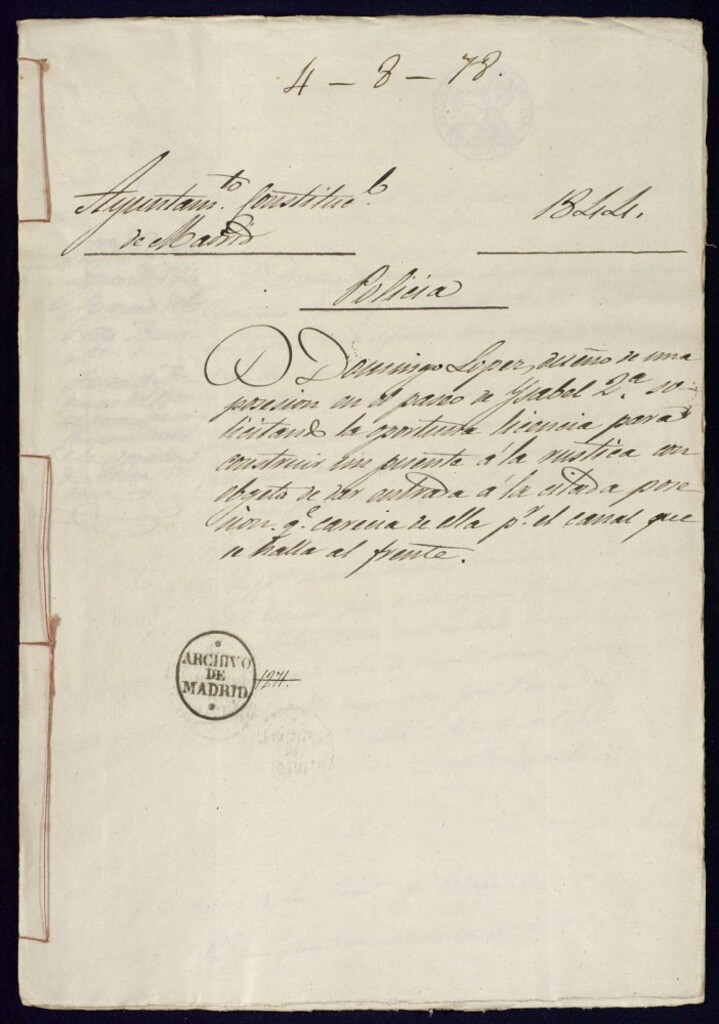 4 - 8 - 78.
Ayuntam.to Constituc.l
de Madrid
1844.
Policia
D. Domingo Lopez, dueño de una
posesion en el paseo de Ysabel 2.a so-
licitando la oportuna licencia para
construir un puente á la rustica con
objeto de dar entrada á la citada pose-
sion q.e carecia de ella p.r el canal que
se halla al frente.
ARCHIVO
DE
MADRID
1271.